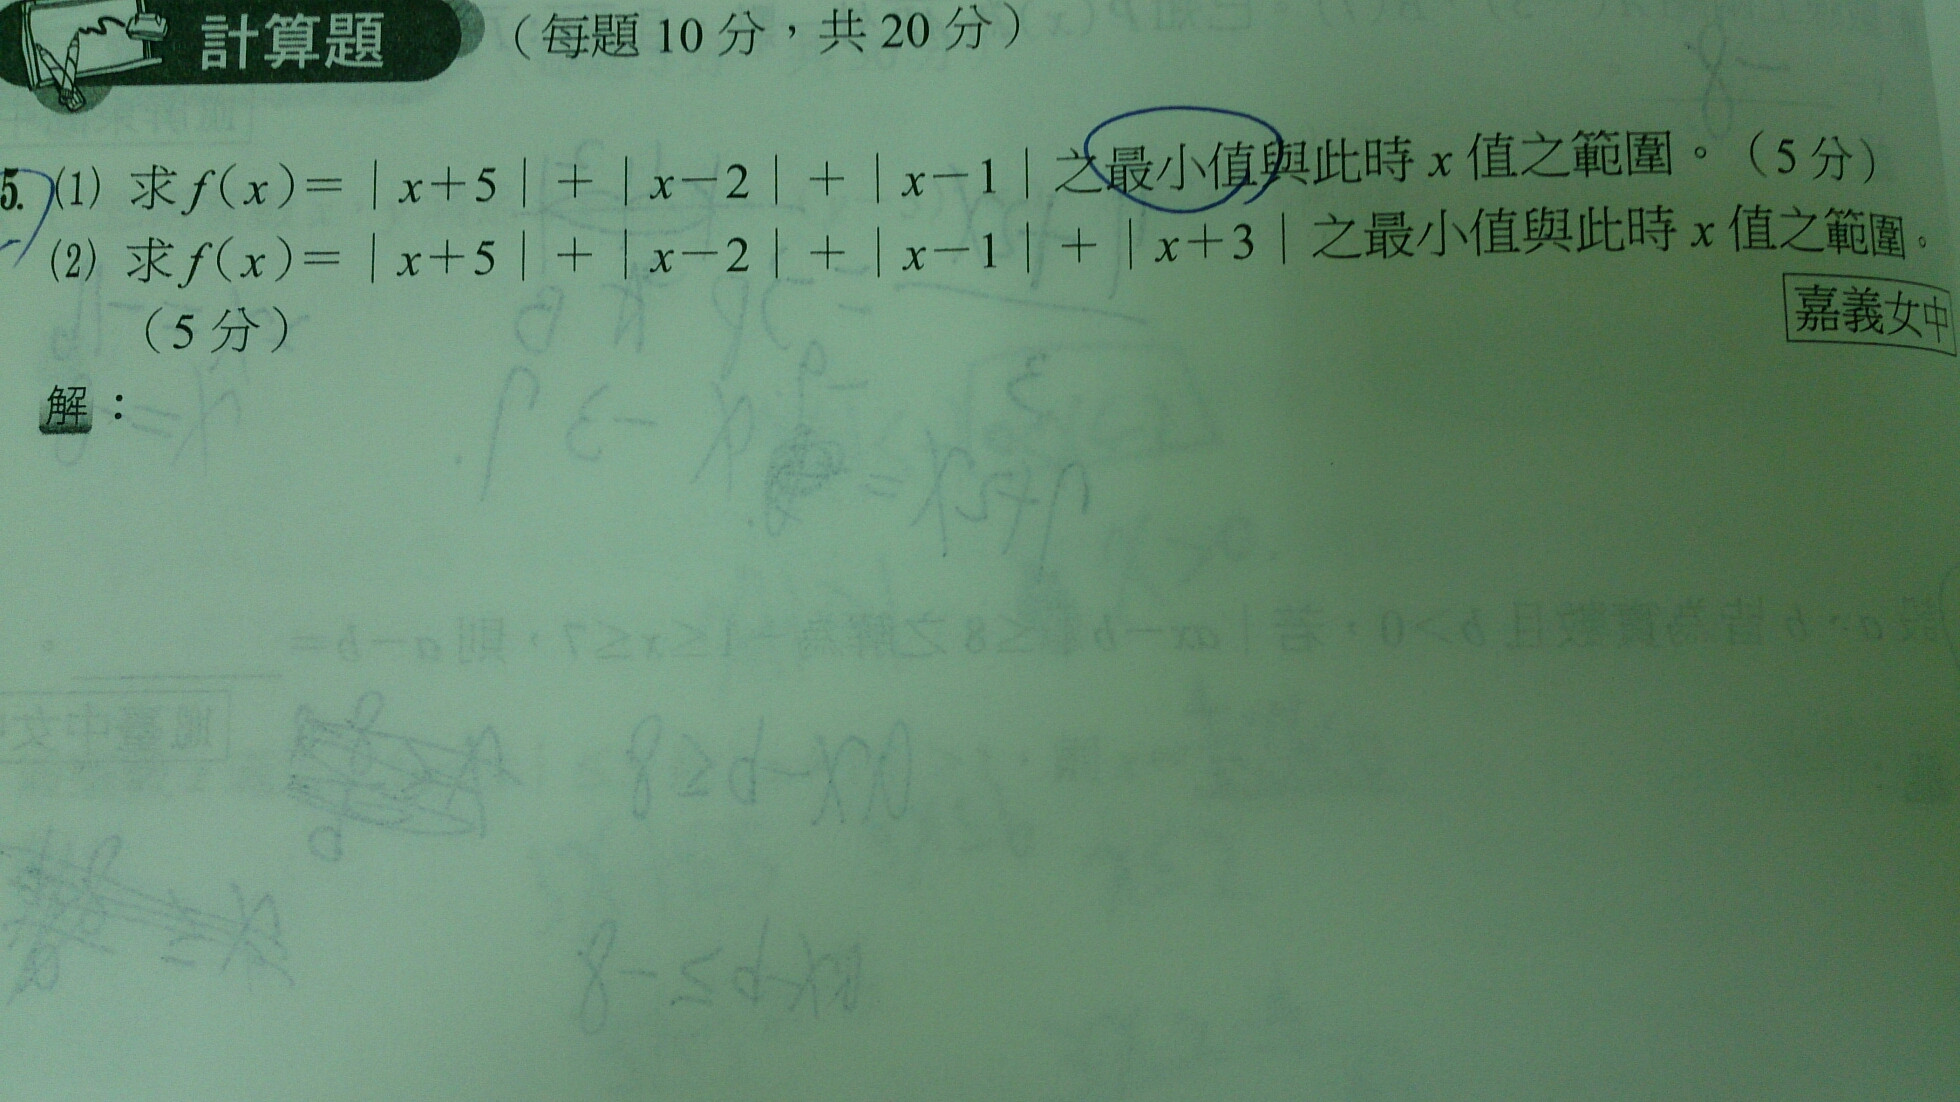 計算題 （每題 10 分，共 20 分）
5. (1) 求 f(x)=|x+5|+|x-2|+|x-1| 之最小值與此時 x 值之範圍。（5 分）
(2) 求 f(x)=|x+5|+|x-2|+|x-1|+|x+3| 之最小值與此時 x 值之範圍。
（5 分）
嘉義女中
解：